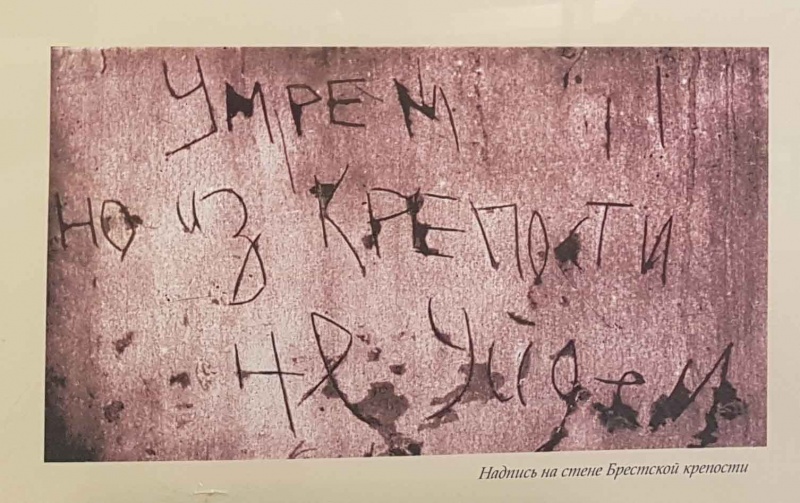 УМРЕМ
НО ИЗ КРЕПОСТИ
НЕ УЙДЕМ
Надпись на стене Брестской крепости